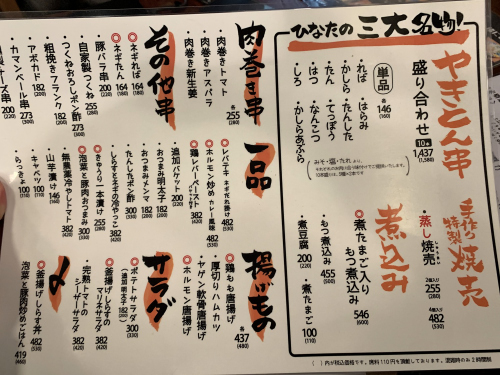 ひなたの三大名物!
やきとん串
盛り合わせ
10本
1,437
(1,580)
単品
各146
(160)
・ればー ・はらみ
・かしら ・たんした
・たん ・てっぽう
・はつ ・なんこつ
・しろ ・かしらあぶら
手作り
特製
焼売
・蒸し焼売
2個入り
255
(280)
4個入り
482
(530)
煮込み
◎煮たまご入り
もつ煮込み
546
(600)
・もつ煮込み
455
(500)
・煮豆腐
200
(220)
・煮たまご
100
(110)
肉巻き串
・肉巻きトマト
・肉巻きアスパラ
・肉巻き新生姜
各255
(280)
その他串
◎ネギればー
164
(180)
◎ネギたん
164
(180)
・豚バラ串
200
(220)
・自家製つくね
255
(280)
・つくねおろしポン酢
273
(300)
・粗挽きフランク
182
(200)
・アボカド
182
(200)
・カマンベール串
273
(300)
一品
◎レバテキ ネギだれ掛け
482
(530)
◎ホルモン炒め カレー風味
482
(530)
◎鶏レバーパテ
382
(420)
・追加バゲット
200
(220)
・おつまみ明太子
182
(200)
・おつまみメンマ
182
(200)
・たんしたポン酢
300
(330)
・しらすとネギの冷やっこ
382
(420)
◎きゅうり一本漬け
255
(280)
◎泡菜と豚肉おつまみ
300
(330)
・無農薬冷やしトマト
382
(420)
・山芋漬け
146
(160)
・キャベツ
100
(110)
・らっきょ
100
(110)
揚げもの
◎鶏もも唐揚げ
・厚切りハムカツ
・ヤゲン軟骨唐揚げ
◎ホルモン唐揚げ
各437
(480)
サラダ
・ポテトサラダ
300
(330)
(追加明太子
182
(200)
◎釜揚げしらすの
チョレギサラダ
382
(420)
・完熟トマトの
シーザーサラダ
382
(420)
〆
◎釜揚げしらす丼
482
(530)
泡菜と豚肉炒めごはん
419
(460)
( )内が税込価格です。席料110円を頂戴しております。混雑時のみ2時間制